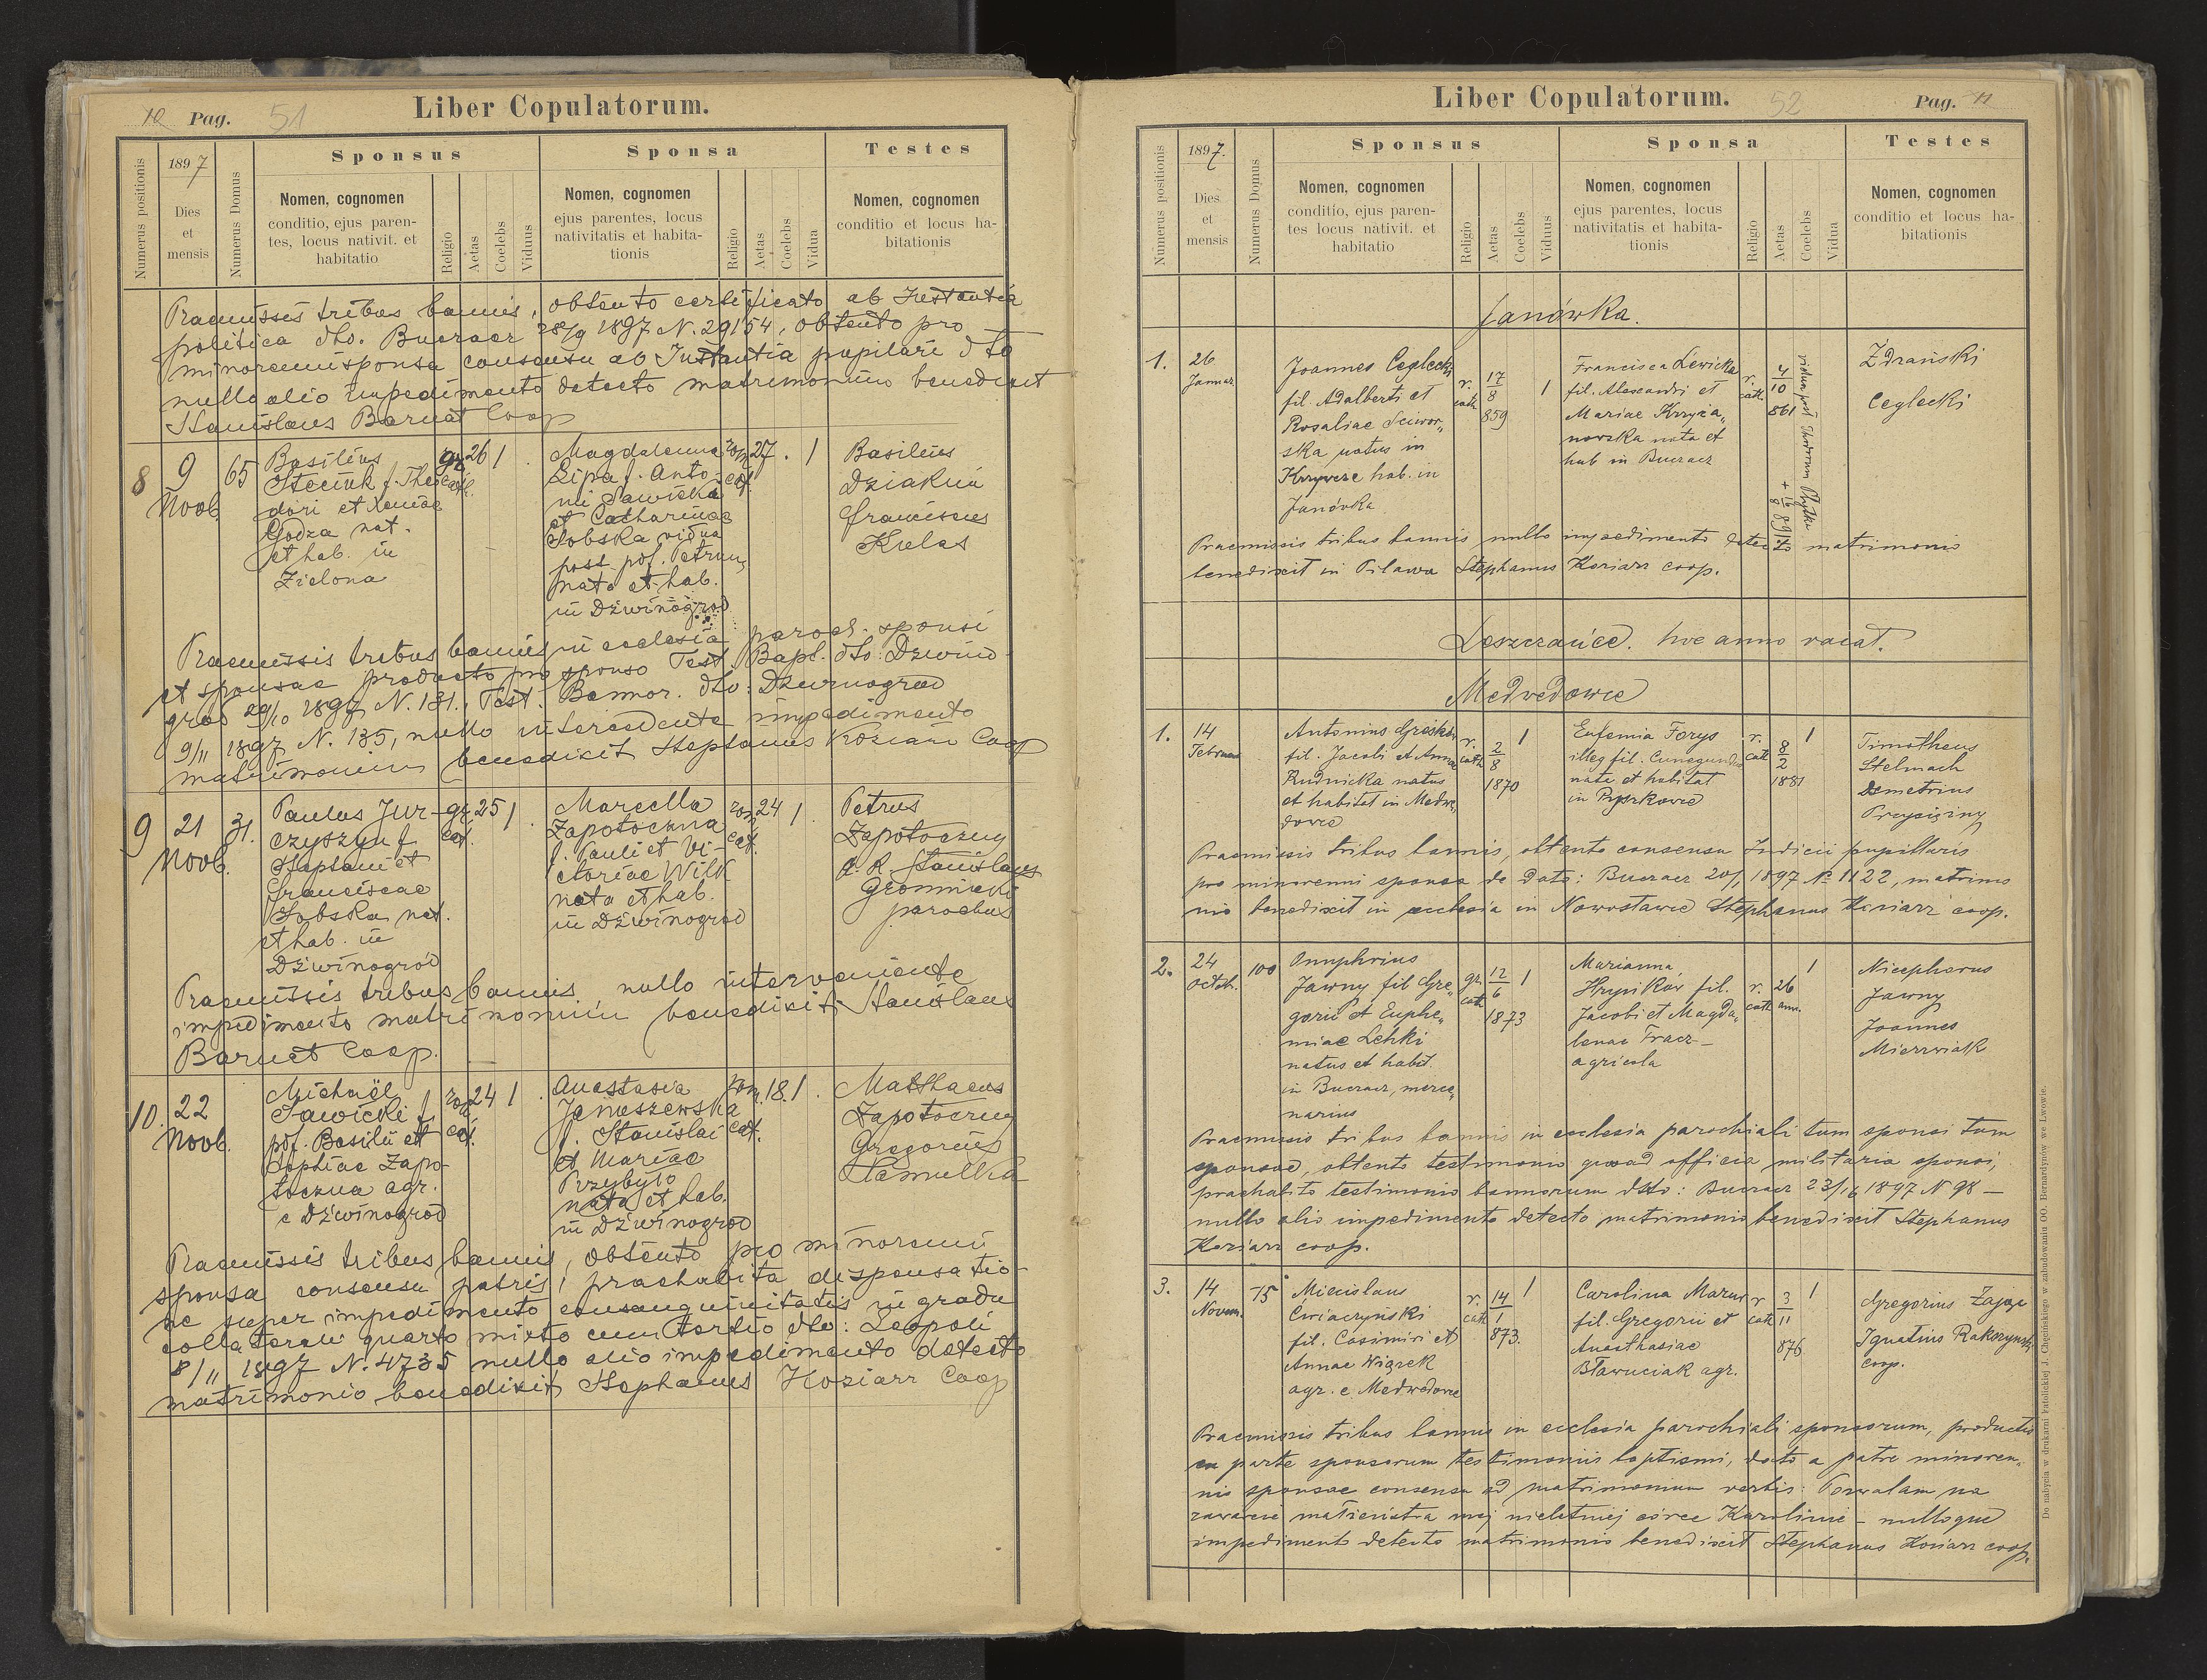 10 Pag. 51 Liber Copulatorum.
Numerus positionis
1897
Dies
et
mensis
Numerus Domus
Sponsus
Nomen, cognomen
conditio, ejus paren-
tes, locus nativit. et
habitatio
Religio
Aetas
Coelebs
Viduus
Sponsa
Nomen, cognomen
ejus parentes, locus
nativitatis et habita-
tionis
Religio
Aetas
Coelebs
Vidua
Testes
Nomen, cognomen
conditio et locus ha-
bitationis
Praemissis tribus bannis, obtento certificato ab Instantia
politica dto. Buczacz 28/9 1897 N. 29154, obtento pro
minorenni sponsa consensu ab Instantia pupilari dto
nullo alio impedimento detecto matrimonium benedixit
Stanislaus Barnat Coop
8
9
Novb.
65
Basilius
Steciuk f. Theo
dori et Xeniae
Godza nat.
et hab. in
Zielona
gr.
cat.
26
1
Magdalenna
Lipa f. Anto-
nii Sawicka
et Catharinae
Sobska vidua
post pof. Petrum
nata et hab.
in Dźwinogrod
rom
cat.
27.
1
Basilius
Dziakun
Franciscus
Kielas
Praemissis tribus bannis in ecclesia paroch. sponsi
et sponsae producto pro sponso Test. Bapt. dto: Dzwino-
grod 29/10 1897 N. 131., Test. Bannor. dto: Dzwinogrod
9/11 1897 N. 135, nullo intercedente impedimento
matrimonium benedixit Stephanus Koziarz Coop
9
21
Novb.
31.
Paulus Jur-
czyszyn f.
Stephani et
Franciscae
Sobska nat.
et hab. in
Dźwinogród
gr.
cat.
25
1
Marcella
Zapotoczna
f. Pauli et Vi-
ctoriae Wilk
nata et hab.
in Dźwinogrod
rom
cat.
24
1
Petrus
Zapotoczny
A. R. Stanislaus
Gromnicki
parochus
Praemissis tribus bannis nullo interveniente
impedimento matrimonium benedixit Stanislaus
Barnat Coop.
10.
22
Novb.
Michaël
Sawicki f.
pof. Basilii et
Sophiae Zapo-
toczna agr.
e Dźwinogrod
rom
cat.
24
1
Anastasia
Januszewska
f. Stanislai
et Mariae
Przybyło
nata et hab.
in Dźwinogrod
rom.
cat.
18.
1
Matthaeus
Zapotoczny
Gregorius
Hamulka
Praemissis tribus bannis, obtento pro minorenni
sponsa consensu patris, praehabita dispensatio-
ne super impedimento consanguinitatis in gradu
collaterali quarto mixto cum tertio dto: Leopoli
8/11 1897 N. 4735 nullo alio impedimento detecto
matrimonio benedixit Stephanus Koziarz Coop
Liber Copulatorum. 52 Pag. 11
Numerus positionis
1897.
Dies
et
mensis
Numerus Domus
Sponsus
Nomen, cognomen
conditio, ejus paren-
tes locus nativit. et
habitatio
Religio
Aetas
Coelebs
Viduus
Sponsa
Nomen, cognomen
ejus parentes, locus
nativitatis et habita-
tionis
Religio
Aetas
Coelebs
Vidua
Testes
Nomen, cognomen
conditio et locus ha-
bitationis
Janówka.
1.
26
Januar
Joannes Ceglecki
fil. Adalberti et
Rosaliae Sciwor„
ska natus in
Krzywcze hab. in
Janówka
r.
cath
17
8
859
1
Francisca Lewicka
fil. Alexandri et
Mariae Krzyża„
nowska nata et
hab in Buczacz
r.
cath
4
10
861
vidua post Theodorum
Zdrański
Ceglecki
Praemissis tribus bannis nullo impedimento detecto matrimonio
benedixit in Pilawa Stephanus Koziarz coop.
Leszczańce. hoc anno vacat.
Medvedowce
1.
14
Februar
Antonius Gręski
fil. Jacobi et Annae
Rudnicka natus
et habitat in Medwe„
dowce
r.
cath
2
8
1870
1
Eufemia Forys
illeg fil. Cunegundis
nata et habitat
in Pyszkowce
r.
cath
8
2
1881
1
Timotheus
Stelmach
Demetrius
Przysiężny
Praemissis tribus bannis, obtento consensu Judicii pupillaris
pro minorenni sponsa de dato: Buczacz 20/1 1897 № 1122, matrimo
nio benedixit in ecclesia in Nowostawce Stephanus Koziarz coop.
2.
24
Octob.
100
Onuphrius
Jawny fil Gre„
gorii et Euphe„
miae Lehki
natus et habit.
in Buczacz, merce„
narius
gr.
cath
12
6
1873
1
Marianna
Hrynków fil.
Jacobi et Magda„
lenae Tracz–
agricola
r.
cath
26
ann.
1
Nicephorus
Jawny
Joannes
Mierzwiak
Praemissis tribus bannis in ecclesia parochiali tum sponsi tum
sponsae, obtento testimonio quoad officia militaria sponsi,
praehabito testimonio bannorum ddto: Buczacz 23/10 1897 N 98 –
nullo alio impedimento detecto matrimonio benedixit Stephanus
Koziarz coop.
3.
14
Novem.
75
Miecislaus
Ćwiaczyński
fil. Casimiri et
Annae Wiązek
agr. e Medwedowce
r.
cath
14
1
873.
1
Carolina Marus
fil. Gregorii et
Anasthasiae
Bławuciak agr.
r
cath
3
11
876
1
Gregorius Zając
Ignatius Rakoczyński
coop.
Praemissis tribus bannis in ecclesia parochiali sponsorum, productis
ex parte sponsorum testimoniis baptismi, dato a patre minoren„
nis sponsae consensu ad matrimonium verbis: Pozwalam na
zawarcie małżeństwa mej nieletniej córce Karolinie – nulloque
impedimento detecto matrimonio benedixit Stephanus Koziarz coop.
Do nabycia w drukarni katolickiej J. Chęcińskiego w zabudowaniu OO. Bernardynów we Lwowie.